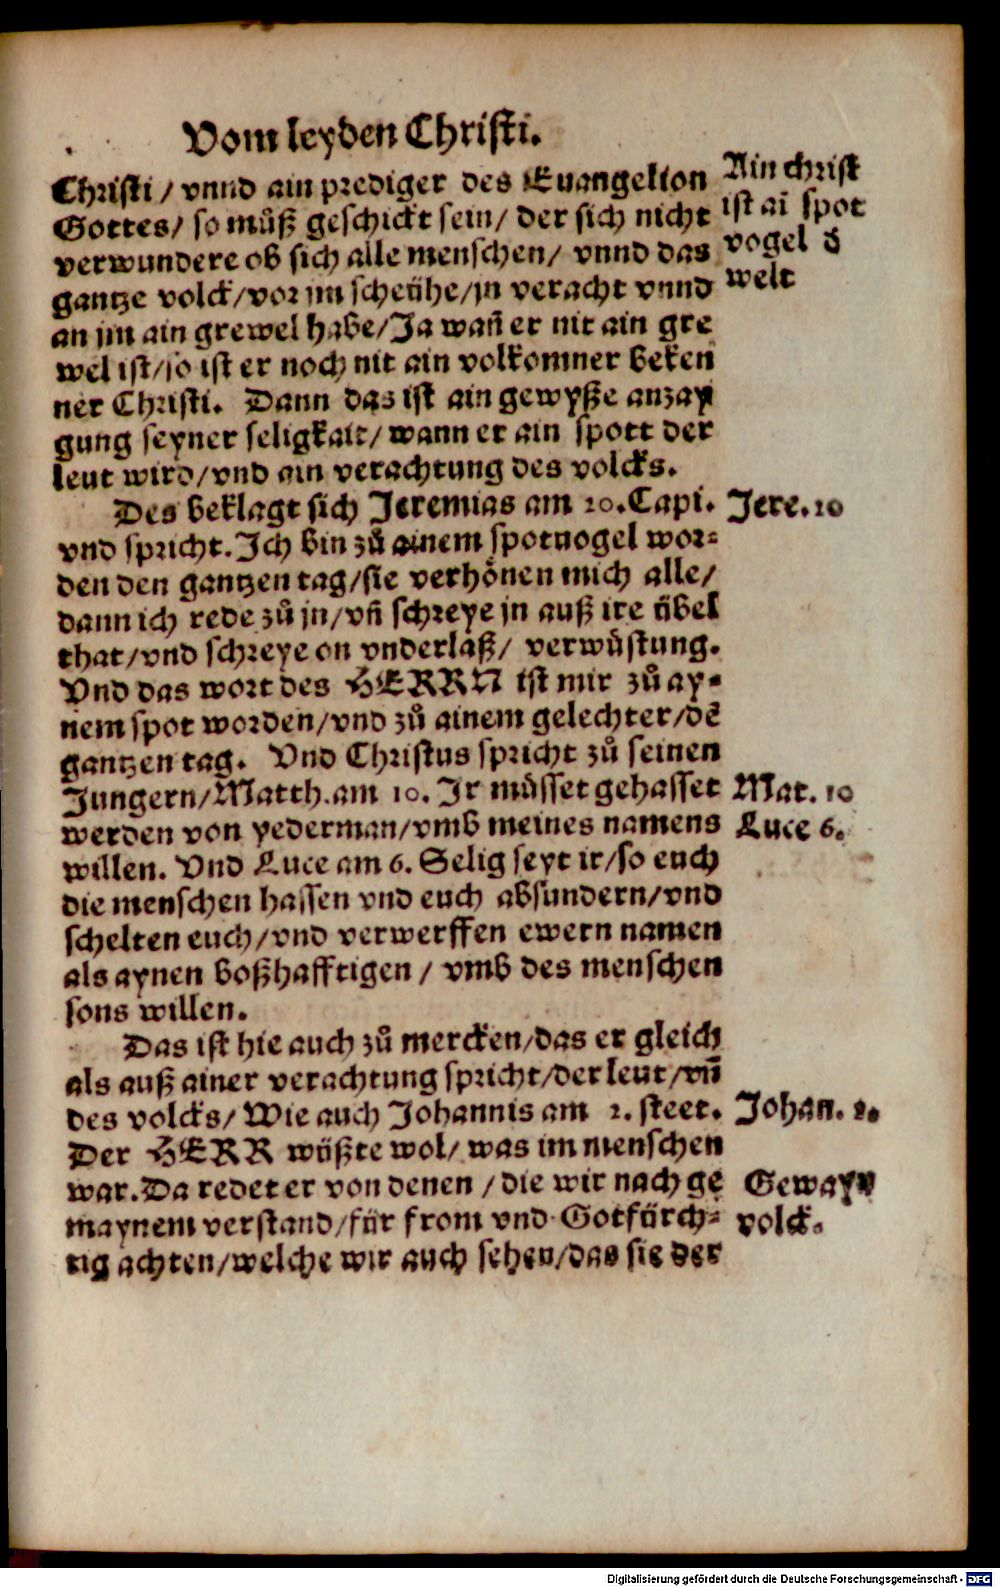 Vom leyden Christi.
Christi / vnnd ain prediger des Euangelion
Gottes / so můß geschickt sein / der sich nicht
verwundere ob sich alle menschen / vnnd das
gantze volck / vor im scheühe / in veracht vnnd
an im ain grewel habe / Ja wañ er nit ain gre
wel ist / so ist er noch nit ain volkomner beken
ner Christi. Dann das ist ain gewyße anzay
gung seyner seligkait / wann er ain spott der
leut wird / vnd ain verachtung des volcks.
Ain christ
ist ai spot
vogel d̄
welt
Des beklagt sich Jeremias am 20. Capi.
vnd spricht. Ich bin zů ainem spotuogel wor⸗
den den gantzen tag / sie verhönen mich alle /
dann ich rede zů jn / vñ schreye jn auß ire übel
that / vnd schreye on vnderlaß / verwüstung.
Vnd das wort des HERRN ist mir zů ay⸗
nem spot worden / vnd zů ainem gelechter / dē
gantzen tag. Vnd Christus spricht zů seinen
Jungern / Matth. am 10. Ir müsset gehasset
werden von yederman / vmb meines namens
willen. Vnd Luce am 6. Selig seyt ir / so euch
die menschen hassen vnd euch absundern / vnd
schelten euch / vnd verwerffen ewern namen
als aynen boßhafftigen / vmb des menschen
sons willen.
Jere. 20
Mat. 10
Luce 6.
Das ist hie auch zů mercken / das er gleich
als auß ainer verachtung spricht / der leut / vñ
des volcks / Wie auch Johannis am 2. steet.
Der HERR wüßte wol / was im menschen
war. Da redet er von denen / die wir nach ge
maynem verstand / für from vnd Gotfürch⸗
tig achten / welche wir auch sehen / das sie der
Johan. 2.
Gemayn
volck.
Digitalisierung gefördert durch die Deutsche Forschungsgemeinschaft - DFG